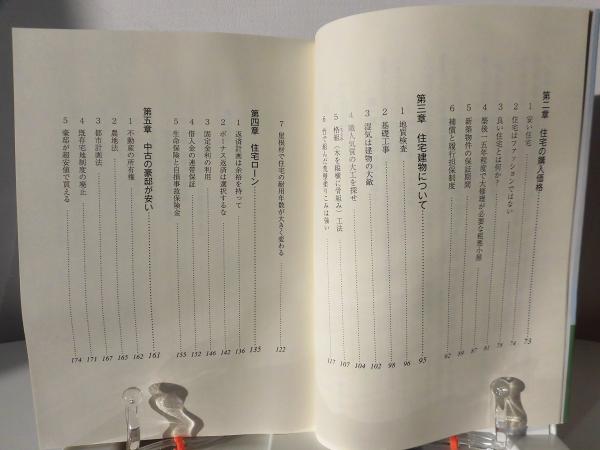 第二章 住宅の購入価格 73
1 安い住宅 74
2 住宅はファッションではない 75
3 良い住宅とは何か? 78
4 築後一五年程度で大修理が必要な粗悪小屋 81
5 新築物件の保証期間 87
6 補償と履行担保制度 92
第三章 住宅建物について 95
1 地質検査 96
2 基礎工事 98
3 湿気は建物の大敵 102
4 職人気質の大工を探せ 104
5 格組(木を縦横に骨組み)工法 107
6 竹で組んだ荒壁塗りこみは強い 117
7 屋根材で住宅の耐用年数が大きく変わる 122
第四章 住宅ローン 135
1 返済計画は余裕を持って 136
2 ボーナス返済は選択するな 142
3 固定金利の利用 146
4 借入金の連帯保証 152
5 生命保険と自損事故保険金 155
第五章 中古の豪邸が安い 161
1 不動産の所有権 162
2 農地法 165
3 都市計画法 167
4 既存宅地制度の廃止 171
5 豪邸が超安値で買える 174